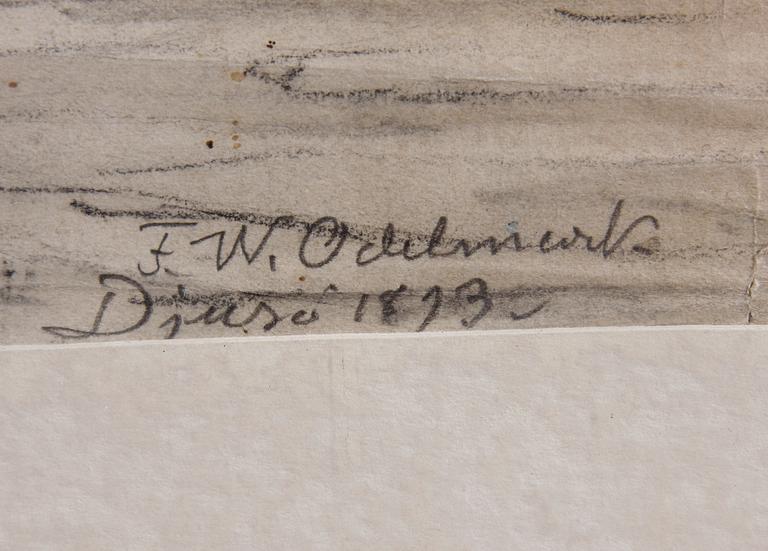 F. W. Odelmark
Djursö 1893